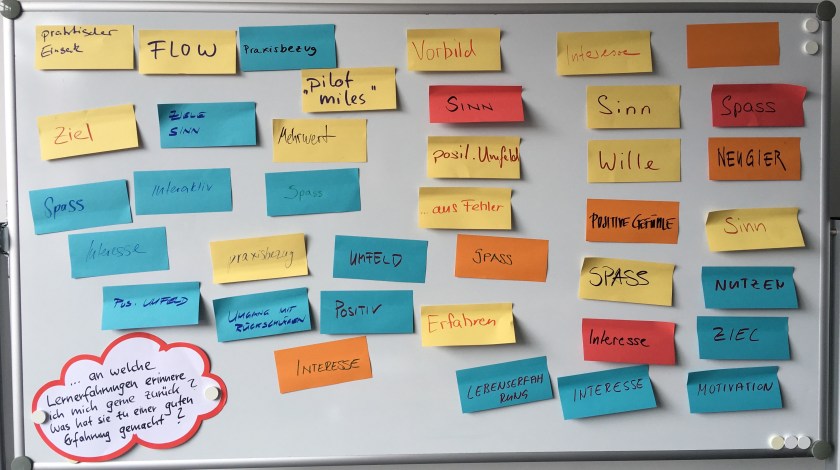 praktischer
Einsatz
FLOW
Praxisbezug
"pilot
miles"
Vorbild
Interesse
Ziel
ZIELE
SINN
Mehrwert
SINN
Sinn
Spass
posit. Umfeld
Wille
NEUGIER
Spass
Interaktiv
Spass
...aus Fehler
POSITIVE GEFÜHLE
Sinn
Interesse
praxisbezug
UMFELD
SPASS
SPASS
NUTZEN
POS. UMFELD
UMGANG MIT
RÜCKSCHLÄGEN
POSITIV
Erfahren
Interesse
ZIEL
INTERESSE
LEBENSERFAH
RUNG
INTERESSE
MOTIVATION
... an welche
Lernerfahrungen erinnere
ich mich gerne zurück?
Was hat sie zu einer guten
Erfahrung gemacht?